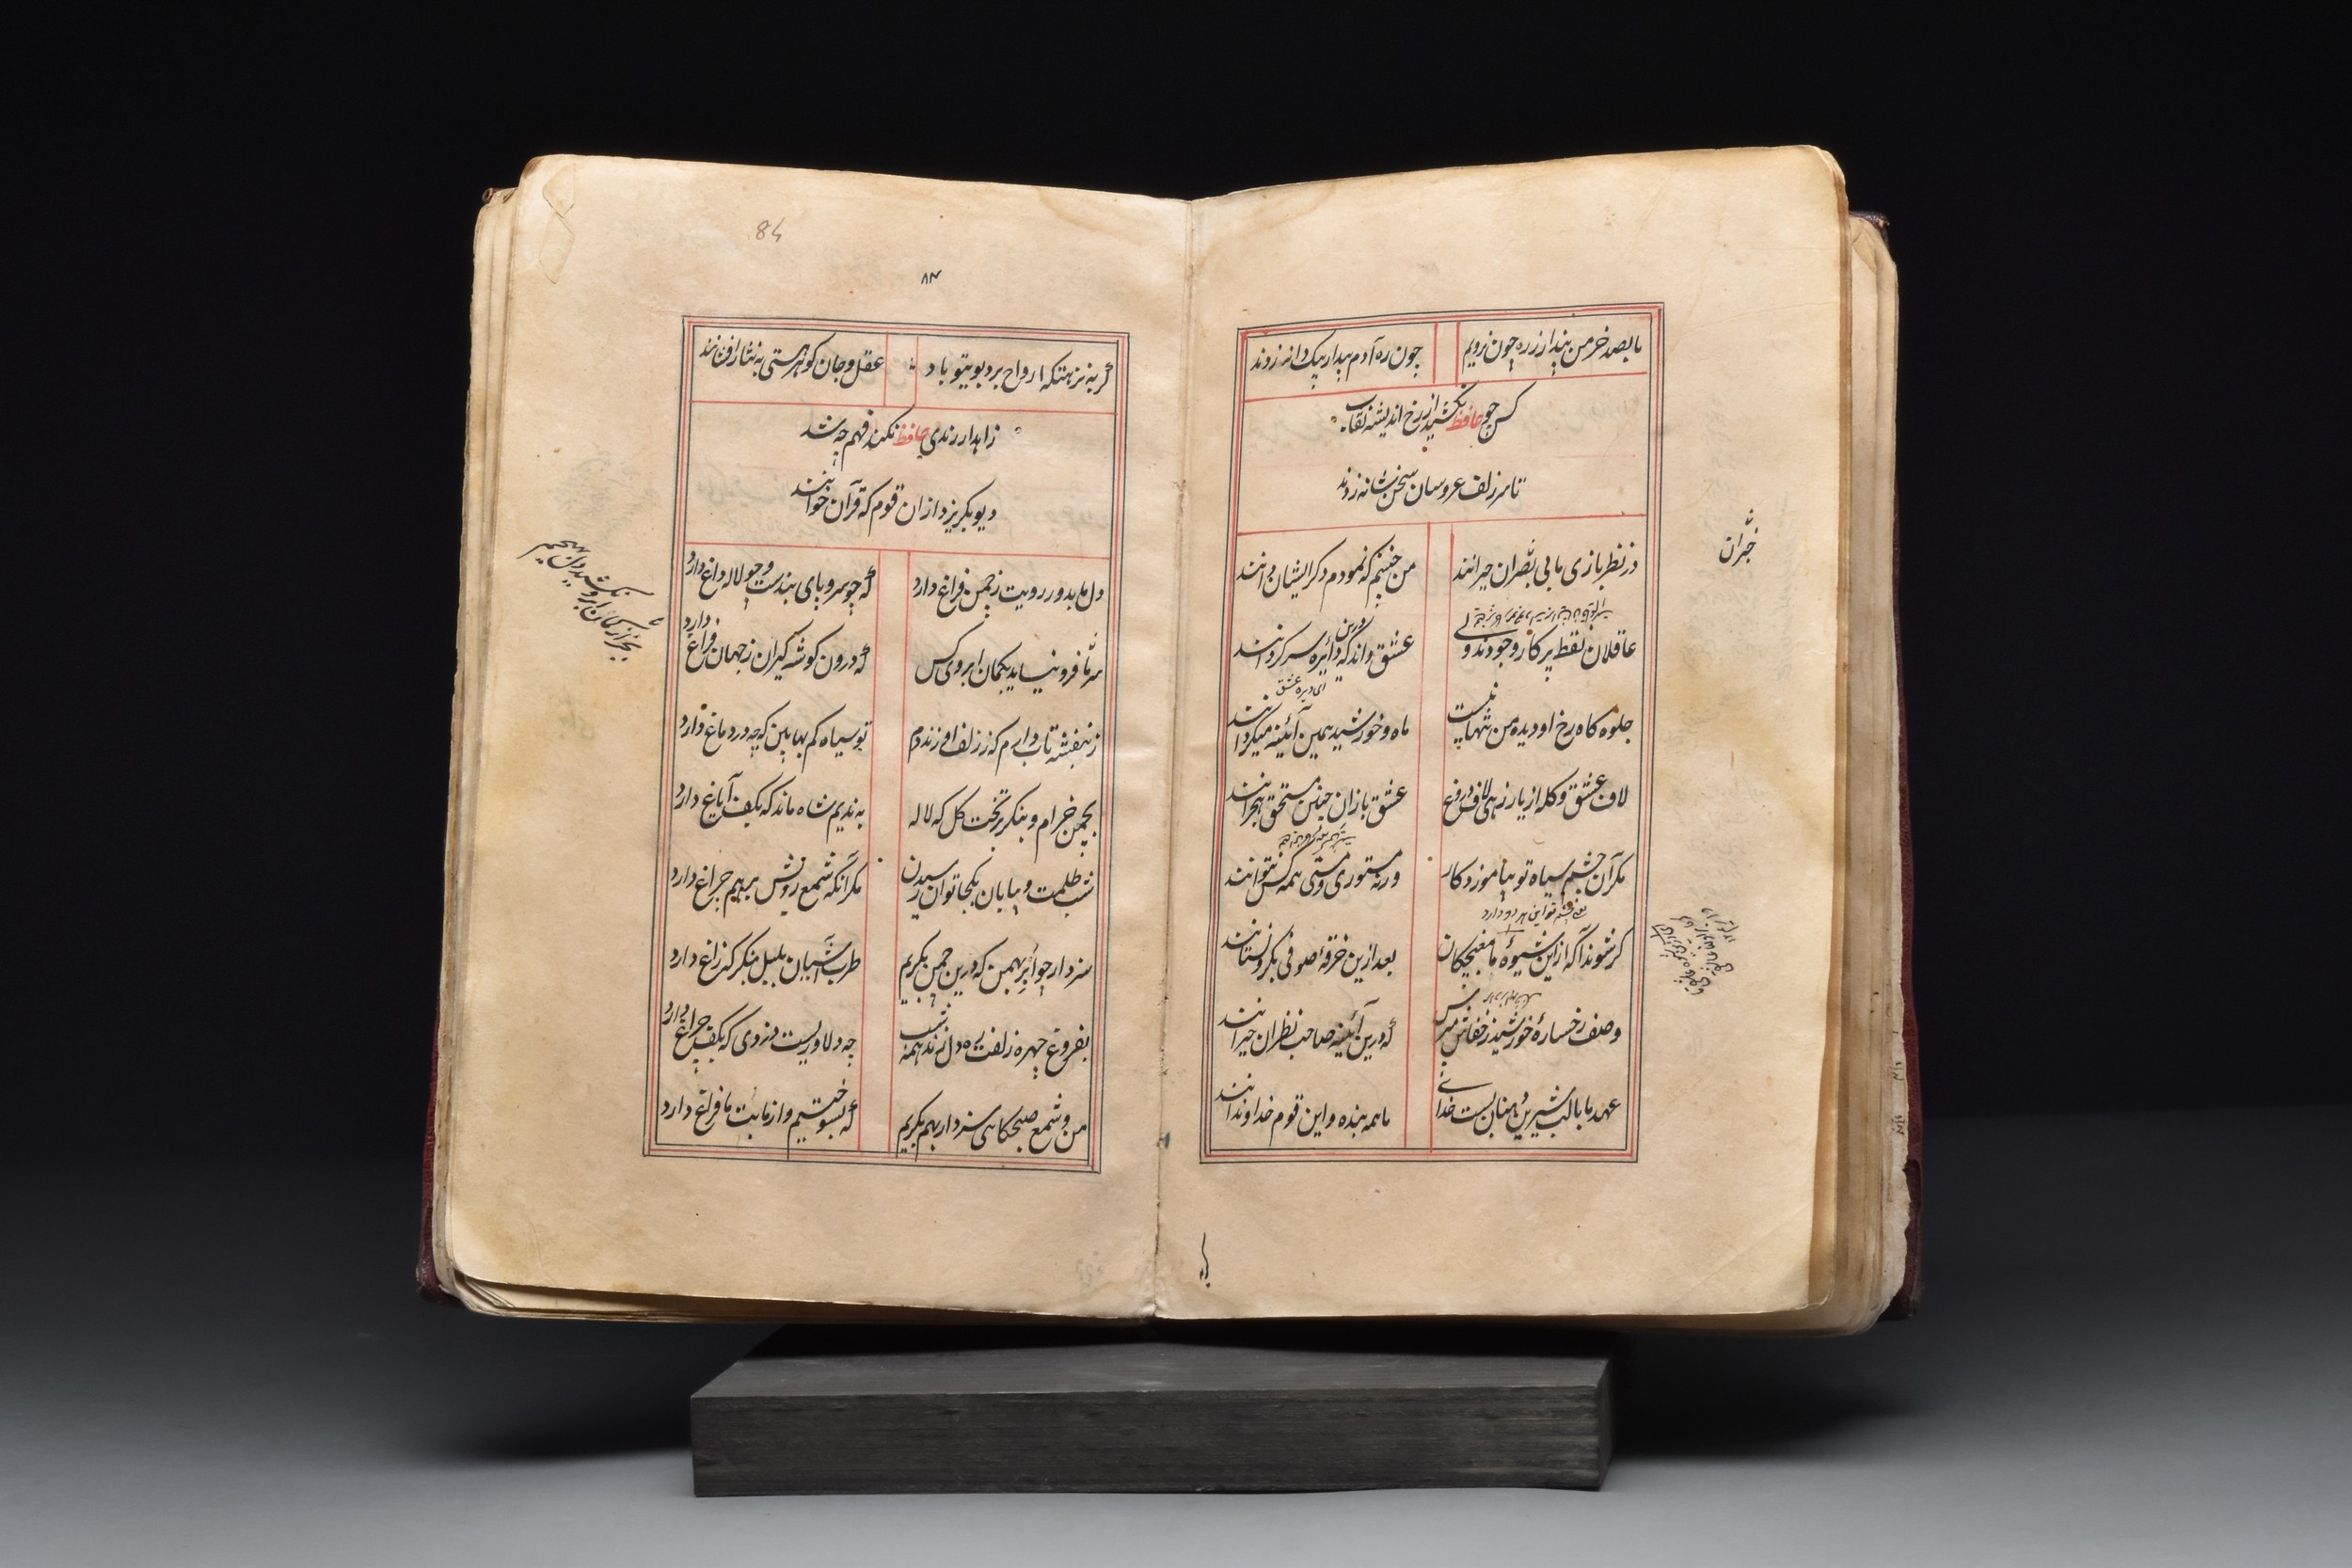 ما بصد خرمن پندار ز ره چون نرویم چون ره آدم بیدار بیک دانه زدند
کس چو حافظ نکشید از رخ اندیشه نقاب
تا سر زلف عروسان سخن شانه زدند
در نظر بازی ما بی بصران حیرانند من چنینم که نمودم دکر ایشان دانند
عاقلان نقطه پرکار وجودند ولی عشق داند که درین دائره سرکردانند
ای دیره عشق
جلوه کاه رخ او دیده من تنها نیست ماه و خورشید همین آئینه میکردانند
لاف عشق و کله از یار زهی لاف دروغ عشق بازان چنین مستحق هجرانند
مکر آن چشم سیاه تو بیاموزد کار ورنه مستوری و مستی همه کس نتوانند
یعنی چشم تو این هر دو دارد
کر شوند آکه ازین شیوۀ ما مغبچکان بعد ازین خرقۀ صوفی بکرو نستانند
وصف رخسارۀ خورشید ز خفاش مپرس که درین آئینه صاحب نظران حیرانند
عهد ما با لب شیرین دهنان بست خدای ما همه بنده و این قوم خداوندانند
84
۸۴
کر به نزهتکه ارواح برد بوی تو باد عقل و جان کوهر هستی به نثار افشانند
زاهد ار رندی حافظ نکند فهم چه شد
دیو بکریزد از آن قوم که قرآن خوانند
دل ما بدور رویت ز چمن فراغ دارد که چو سرو پای بندست و چو لاله داغ دارد
سر ما فرو نیاید بکمان ابروی کس که درون کوشه کیران ز جهان فراغ دارد
ز بنفشه تاب دارم که ز زلف او زند دم تو سیاه کم بها بین که چه در دماغ دارد
بچمن خرام و بنکر بر تخت کل که لاله به ندیم شاه ماند که بکف ایاغ دارد
شب ظلمت و بیابان بکجا توان رسیدن مکر آنکه شمع رویش برهم چراغ دارد
سزد ار چو ابر بهمن که درین چمن بکریم طرب آشیان بلبل بنکر که زاغ دارد
بفروغ چهره زلفت ره دل زند همه شب چه دلاوریست دزدی که بکف چراغ دارد
من و شمع صبحکاهی سزد ار بهم بکریم که بسوختیم و از ما بت ما فراغ دارد